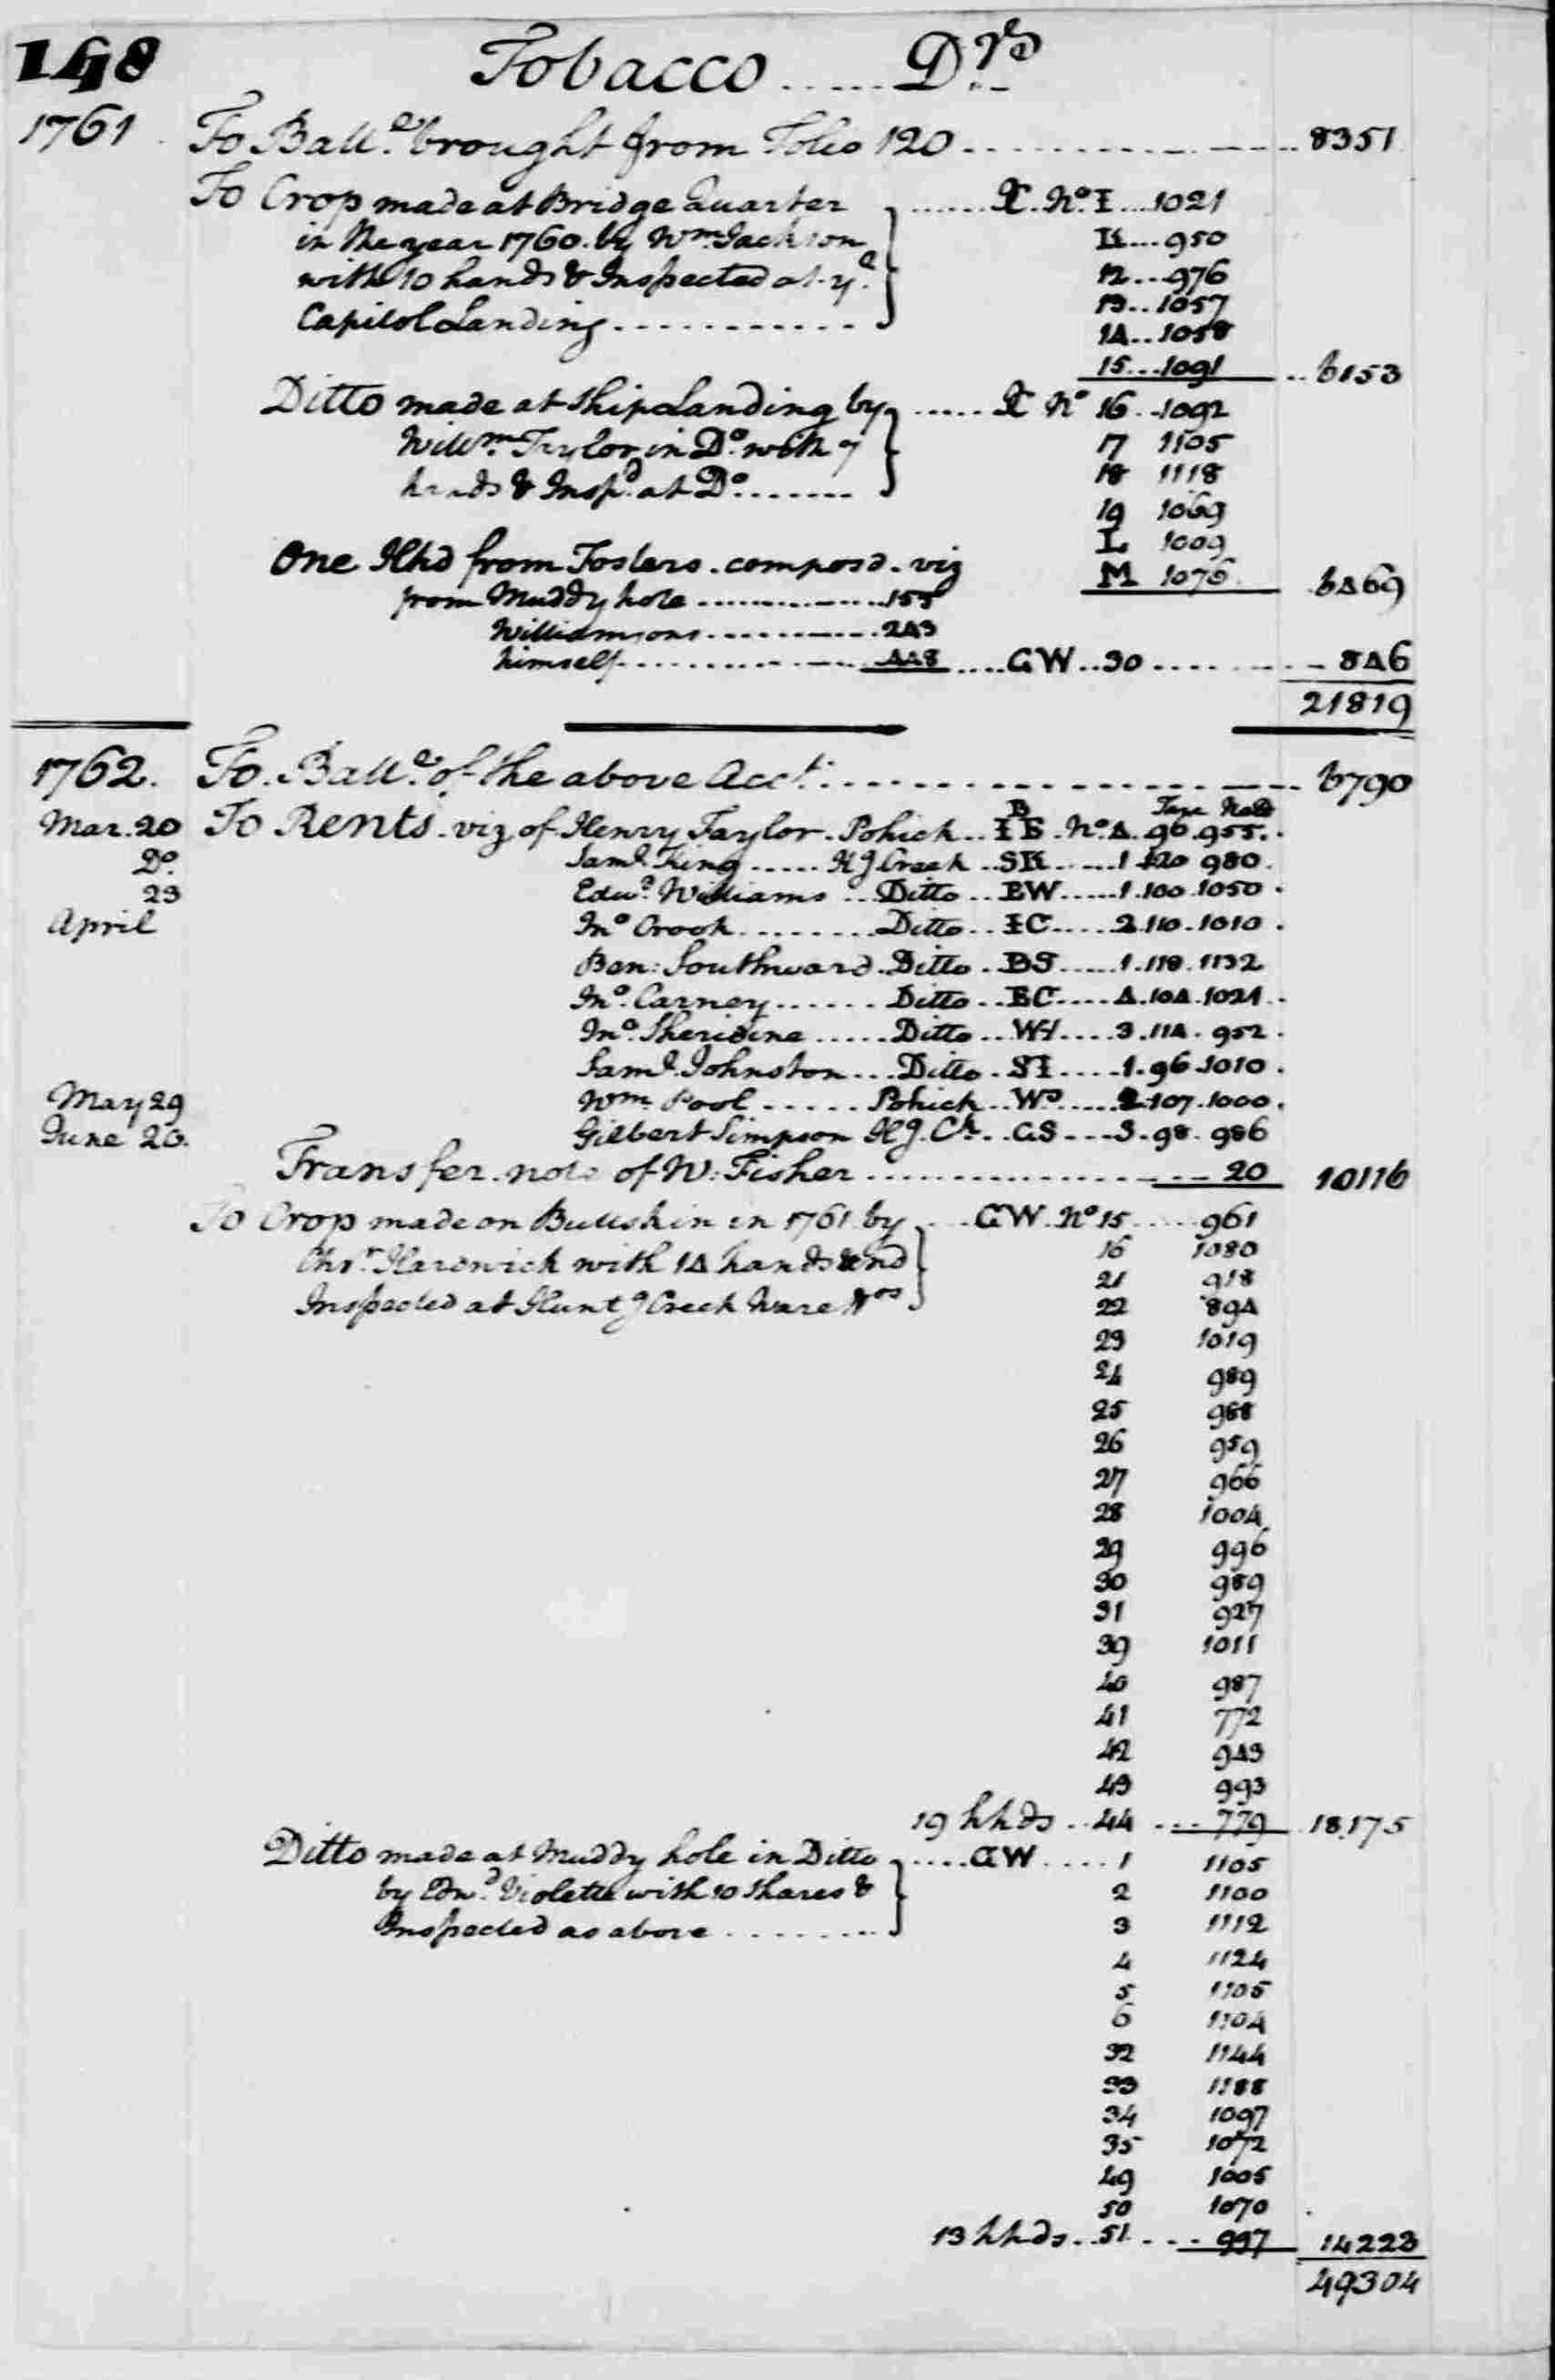 148 Tobacco ...... Drs
1761 To Balle. brought from Folio 120 ............ 8351
To Crop made at Bridge Quarter ...... X. No. I .... 1021
in the year 1760. by Wm. Jackson K .... 950
with 10 hands & Inspected at ye. 12 ... 976
Capitol Landing ............ 13 .. 1057
14 .. 1058
15 ... 1091 .. 6153
Ditto made at Ship Landing by ...... X No 16 .. 1092
Willm. Taylor in Do. with 7 17 1105
hands & Inspd. at Do. ....... 18 1118
19 1069
L 1009
One Hhd from Fosters. composd. viz M 1076 6469
from Muddy hole ............ 155
Williamsons ............ 243
himself ............ 448 .... GW .. 30 ........ 846
21819
1762. To Balle. of the above Acct. ............ 6790
Tare Nett
Mar. 20 To Rents. viz of Henry Taylor. Pohick .. I B B . No. 4. 96. 955.
Do. Saml. King ..... H g Creek .. SK ..... 1 120 980.
23 Edwd. Williams ... Ditto .. EW ..... 1. 100. 1050.
April Jno Crook ......... Ditto .. IC ..... 2. 110. 1010.
Ben: Southward. Ditto . BS ..... 1. 118. 1132
Jno. Carney ....... Ditto .. BC .... 4. 104. 1021.
Jno. Sheridine ..... Ditto ... WH .... 3. 114. 952.
Saml. Johnston ... Ditto . SI .... 1. 96. 1010.
May 29 Wm. Pool ...... Pohick .. WP ..... 2. 107. 1000.
June 20. Gilbert Simpson H g. Ck. .. GS ... 3. 98. 986
Transfer note of W: Fisher ............ 20 10116
To Crop made on Bullskin in 1761 by .... GW. No 15 ..... 961
Chrr. Hardwick with 14 hands and 16 1080
21 918
Inspected at Huntg Creek Ware Hos 22 894
23 1019
24 989
25 988
26 959
27 966
28 1004
29 996
30 989
31 927
39 1011
40 987
41 772
42 943
43 993
19 hhds .. 44 .... 779 18,175
Ditto made at Muddy hole in Ditto ..... GW ..... 1 1105
by Edwd. Violette with 10 Shares & 2 1100
Inspected as above .......... 3 1112
4 1124
5 1105
6 1104
32 1144
33 1188
34 1097
35 1072
49 1005
50 1070
13 hhds .. 51 .... 997 14223
49304